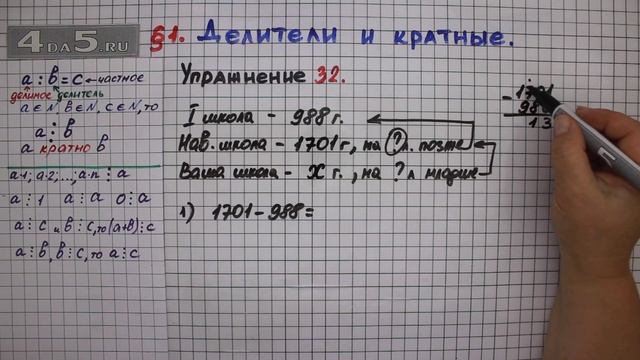 4DA5.RU
§1. Делители и кратные.
a : b = c ← частное
делимое делитель
a ∈ N, b ∈ N, c ∈ N, то
a ⋮ b
a кратно b
a·1; a·2; ...; a·n ⋮ a
a ⋮ 1 a ⋮ a 0 ⋮ a
a ⋮ c и b ⋮ c, то (a+b) ⋮ c
a ⋮ b, b ⋮ c, то a ⋮ c
Упражнение 32.
I школа - 988 г.
Нав. школа - 1701 г, на ? л. позже
Ваша школа - x г., на ? л младше
1) 1701 - 988 =
- 1701
13